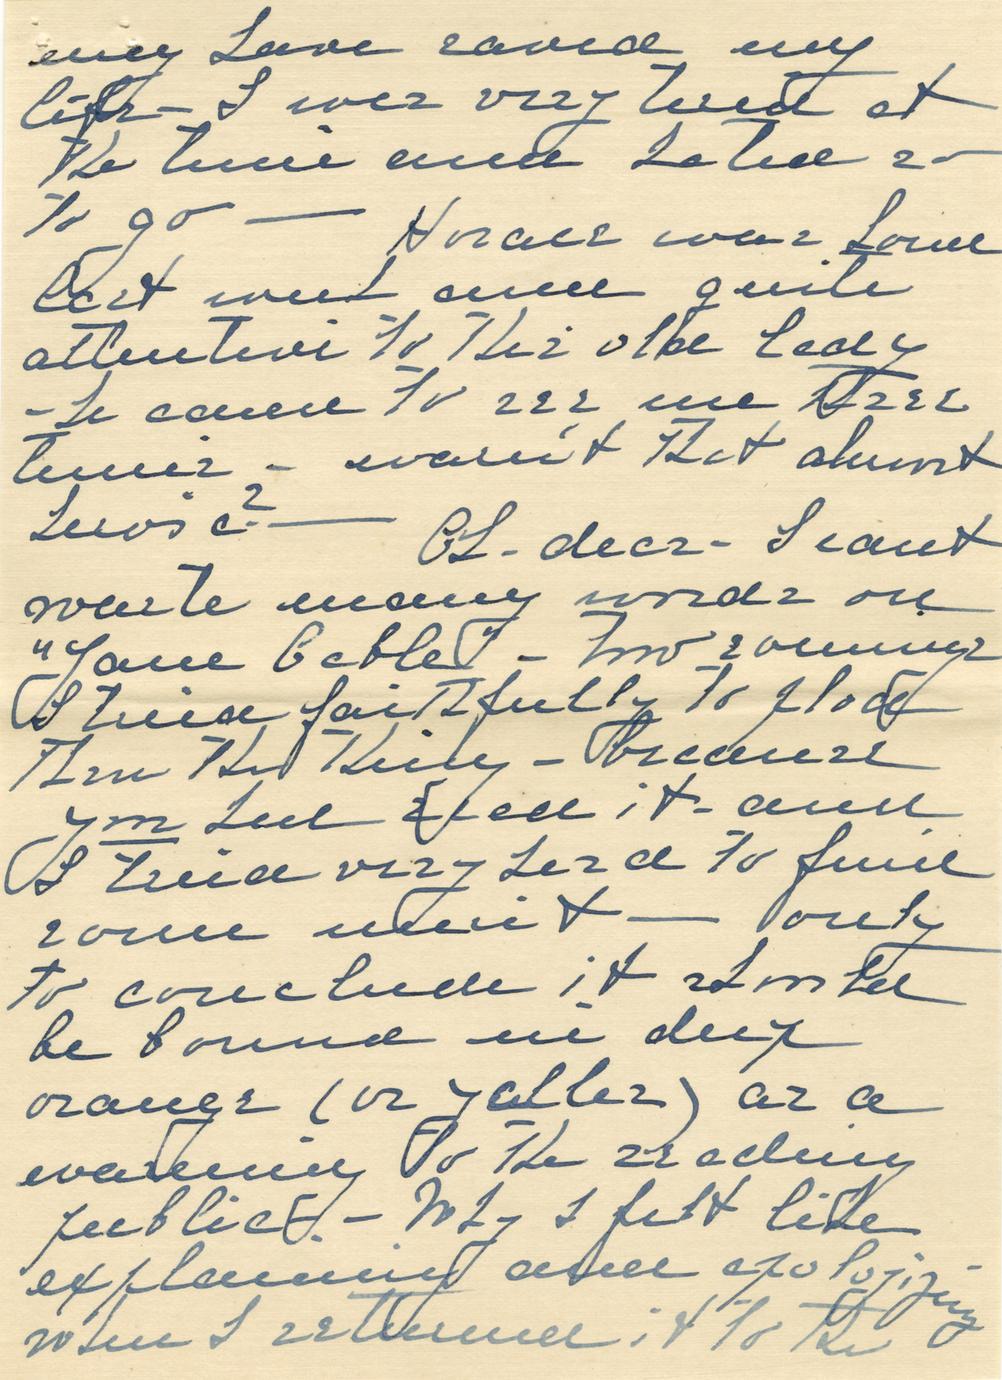 may have saved my
life - I was very tired at
the time and hated so
to go — Horace was home
last week and quite
attentive to this old lady
- he came to see me three
times - wasn't that almost
heroic? — Oh - dear - I can't
waste many words on
"Jane Cable" - Two evenings
I tried faithfully to plod
thru the thing - because
you had read it - and
I tried very hard to find
some merit — only
to conclude it should
be bound in deep
orange (or yaller) as a
warning to the reading
public - Why I felt like
explaining and apologizing
when I returned it to the